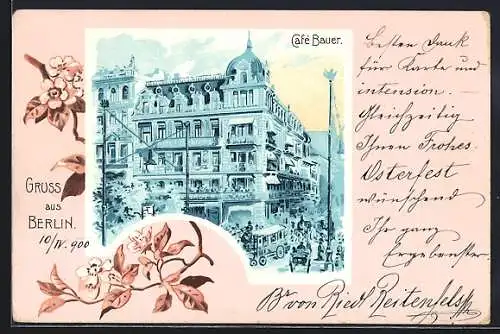 Café Bauer.
Besten Dank
für Karte und
intension.
Gleichzeitig
Ihnen Frohes
Osterfest
wünschend
Ihr ganz
Ergebenster
GRUSS
aus
BERLIN.
10/IV. 900
Br von Riedl Reitenfels